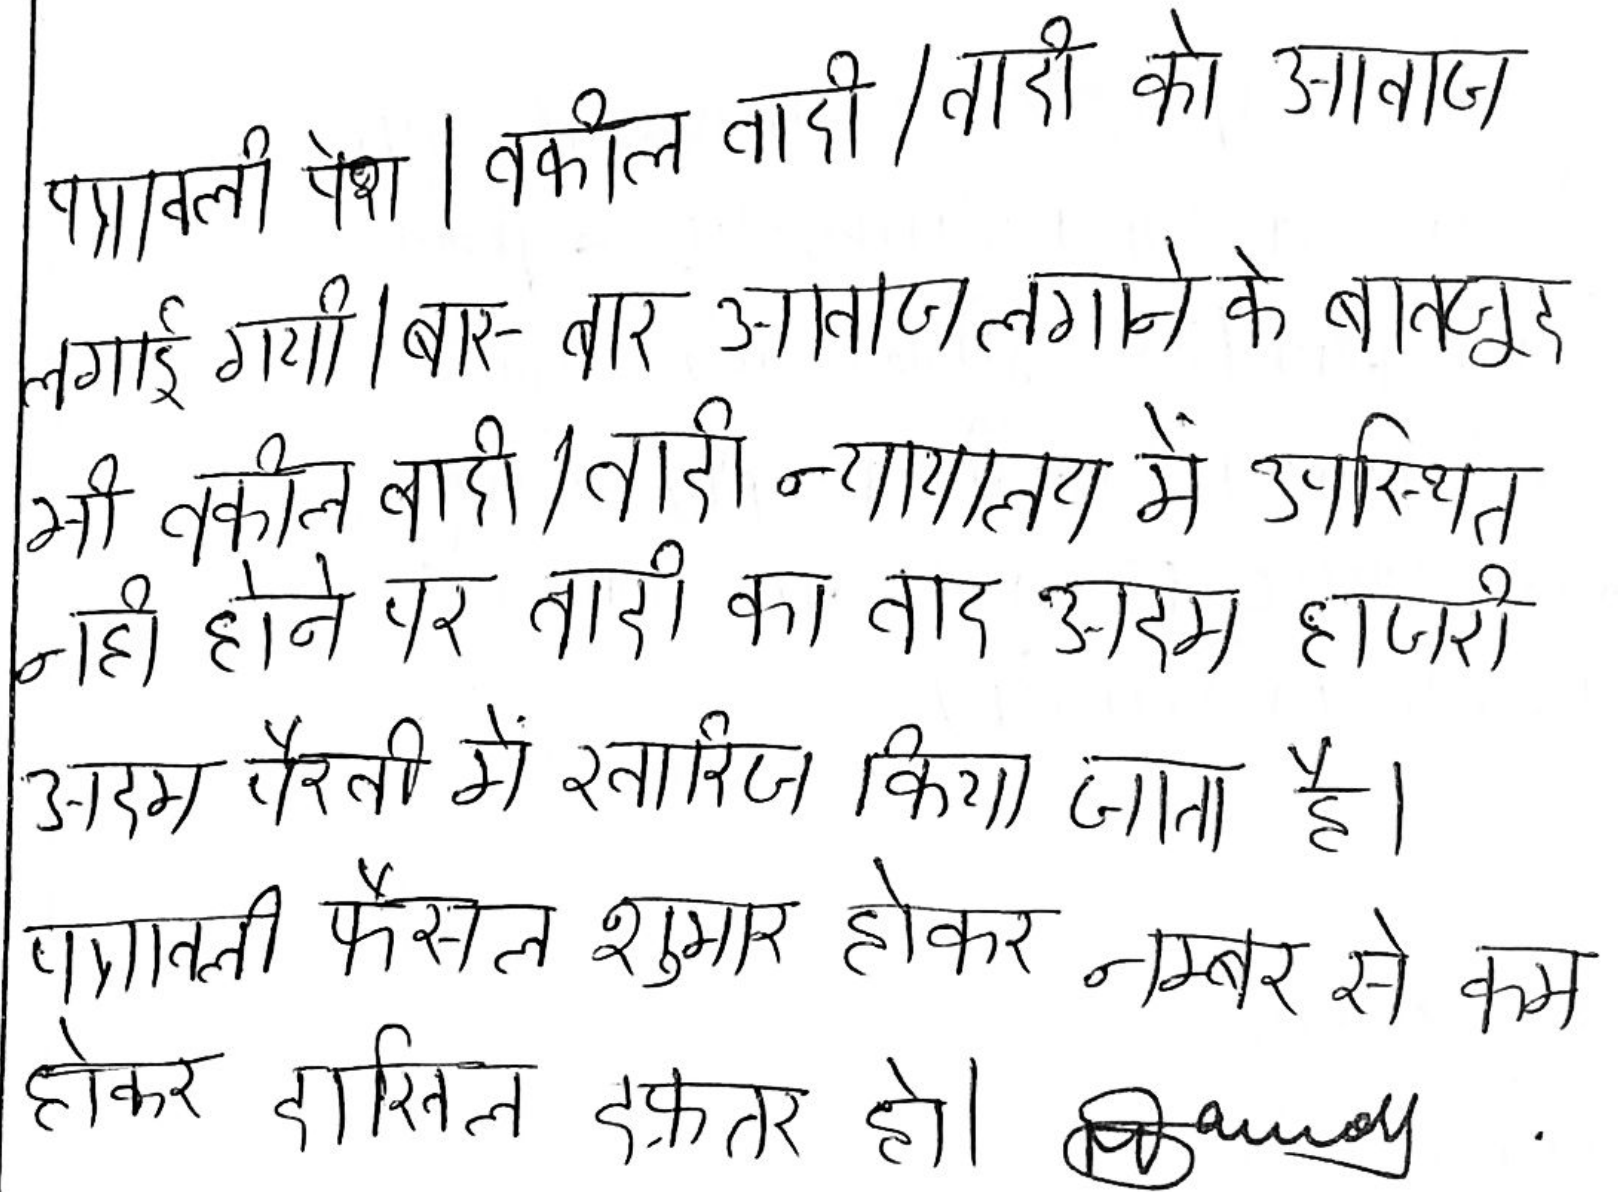 पत्रावली पेश। वकील वादी / वादी को आवाज
लगाई गयी। बार- बार आवाज लगाने के बावजूद
भी वकील वादी / वादी न्यायालय में उपस्थित
नही होने पर वादी का वाद अदम हाजरी
अदम पैरवी में खारिज किया जाता है।
पत्रावली फैसल शुमार होकर नम्बर से कम
होकर दाखिल दफ़तर हो।